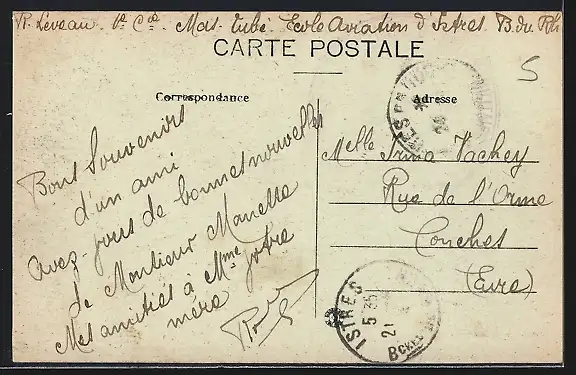 R. Léveau. 1e Cie. Mas. Tubé. Ecole Aviation d'Istres. B. du Rh
CARTE POSTALE
5
Correspondance
Adresse
Bons Souvenirs
d'un ami
avez-vous de bonnes nouvelles
de Monsieur Marcelle
Mes amitiés à Mme votre
mère
Melle Irma Vachey
Rue de l'Orme
Conches
(Eure)
ISTRES
5 35
21